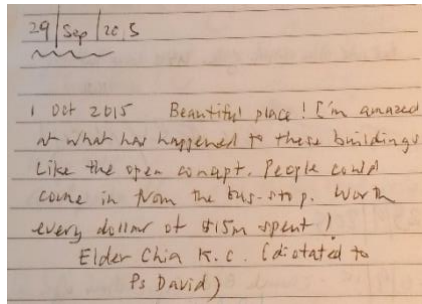 29/Sep/2015
1 Oct 2015 Beautiful place! I'm amazed
at what has happened to these buildings
Like the open concept. People could
come in from the bus-stop. Worth
every dollar of $15m spent!
Elder Chia K.C. (dictated to
Ps David)